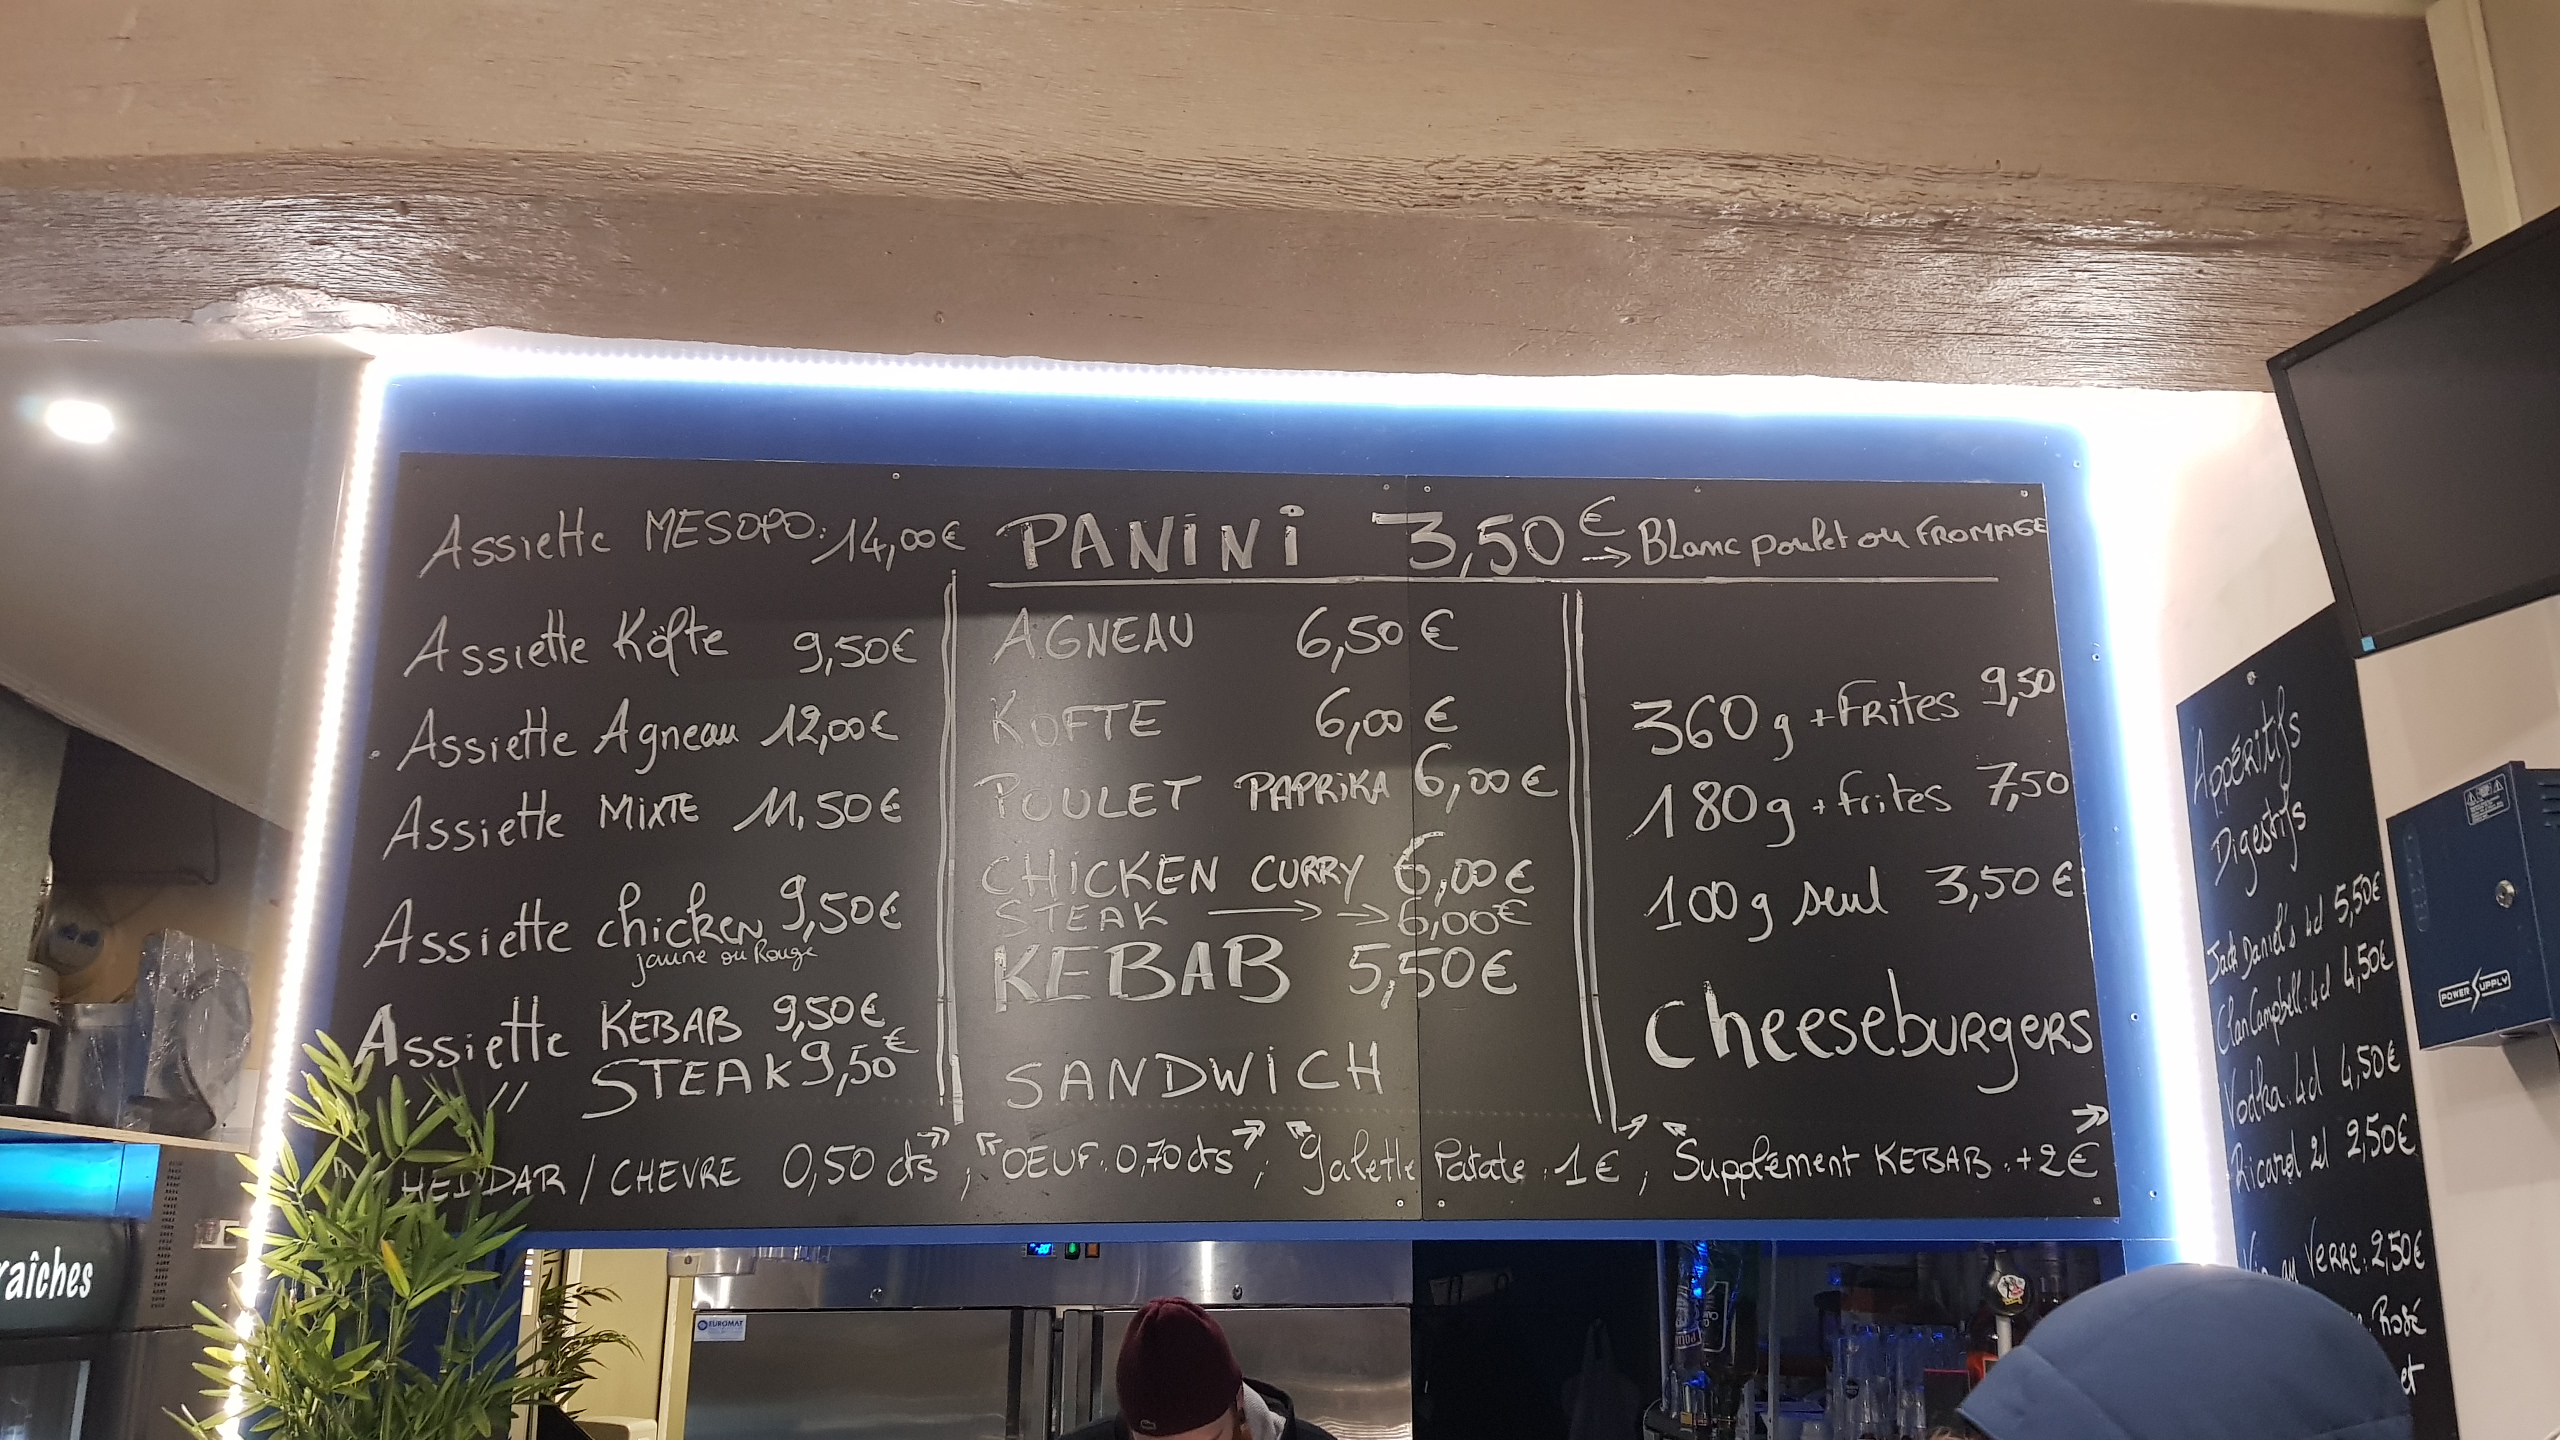 Assiette MESOPO: 14,00€
Assiette Köfte 9,50€
Assiette Agneau 12,00€
Assiette MiXTE 11,50€
Assiette chicken 9,50€
jaune ou Rouge
Assiette KEBAB 9,50€
" " STEAK 9,50€
PANiNi 3,50€ → Blanc poulet ou FROMAGE
AGNEAU 6,50€
KOFTE 6,00€
POULET PAPRiKA 6,00€
CHiCKEN CURRY 6,00€
STEAK → → 6,00€
KEBAB 5,50€
SANDWiCH
360g + FRites 9,50
180g + frites 7,50
100g seul 3,50€
Cheeseburgers
HEDDAR / CHEVRE 0,50 cts ; OEUF: 0,70 cts ; galette Patate: 1€ ; Supplément KEBAB: +2€
Appéritifs
Digestifs
Jack Daniel's 4cl 5,50€
Clan Campbell: 4cl 4,50€
Vodka: 4cl 4,50€
Ricard 2l 2,50€
Vin au Verre: 2,50€
Rosé
et
raîches
EUROMAT
POWER SUPPLY